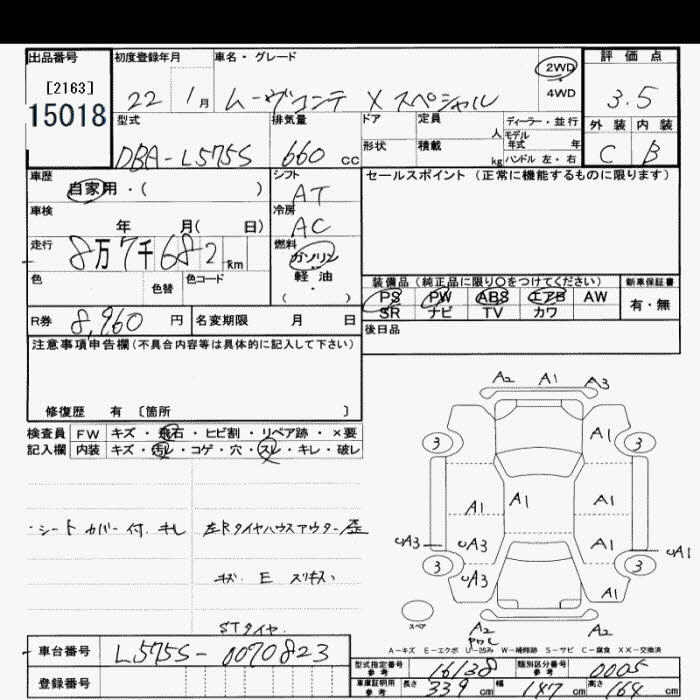 出品番号 初度登録年月 車名・グレード 評価点
[2163] 2WD
15018 22 1月 ムーヴコンテ X スペシャル 4WD 3.5
型式 排気量 ドア 定員 人 ディーラー・並行 外装 内装
モデル年式 年
DBA-L575S 660 cc 形状 積載 kg ハンドル 左・右 C B
車歴 自家用・( ) シフト AT セールスポイント(正常に機能するものに限ります)
車検 年 月( 日) 冷房 AC
走行 8万7千682km 燃料 ガソリン
色 色替 色コード 軽油
( )
装備品(純正品に限り○をつけてください) 新車保証書
PS PW ABS エアB AW 有・無
SR ナビ TV カワ
R券 8,960円 名変期限 月 日 後日品
注意事項申告欄(不具合内容等は具体的に記入して下さい)
修復歴 有 〔箇所 〕
検査員 FW キズ・飛石・ヒビ割・リペア跡・×要
記入欄 内装 キズ・汚レ・コゲ・穴・スレ・キレ・破レ
・シートカバー付.キレ 左Rタイヤハウスアウター歪
キズ E スリキズ
STタイヤ
A2 A1 A3
A1
3 3
A1 A1 A1
UA3 UA3 A1 UA1
3 3
UA3 A1
スペア A2 A2
PワレA-キズ E-エクボ U-凹み W-補修跡 S-サビ C-腐食 XX-交換済
車台番号 L575S-0070823
登録番号
型式指定番号 参考 16138 類別区分番号 参考 0005
車庫証明用 参考 長さ 339cm 幅 147cm 高さ 164cm